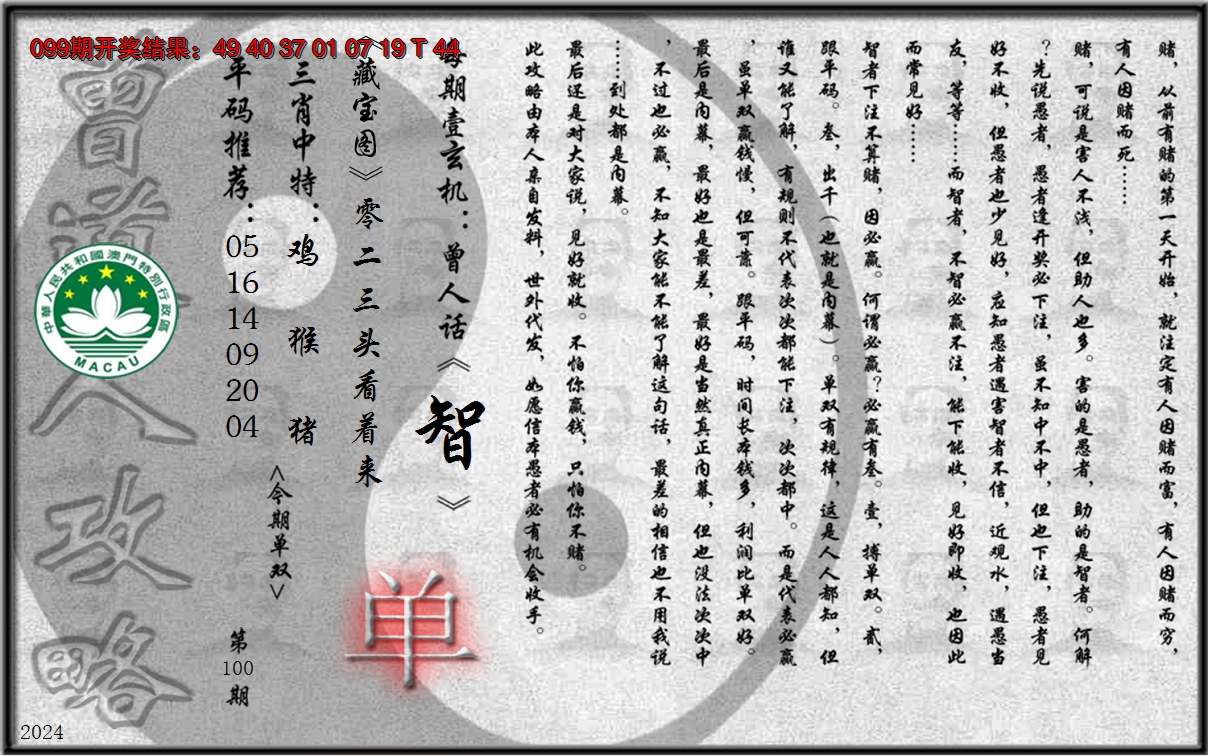 099期开奖结果：49 40 37 01 07 19 T 44
赌，从前有赌的第一天开始，就注定有人因赌而富，有人因赌而穷，
有人因赌而死……
赌，可说是害人不浅，但助人也多。害的是愚者，助的是智者。何解
？先说愚者，愚者逢开奖必下注，虽不知中不中，但也下注，愚者见
好不收，但愚者也少见好，应知愚者遇害智者不信，近观水，遇愚当
友，等等……而智者，不智必赢不注，能下能收，见好即收，也因此
而常见好……
智者下注不算赌，因必赢。何谓必赢？必赢有叁。壹，搏单双。贰，
跟平码。叁，出千（也就是内幕）。单双有规律，这是人人都知，但
谁又能了解，有规则不代表次次都能下注，次次都中。而是代表必赢
，虽单双赢钱慢，但可靠。跟平码，时间长本钱多，利润比单双好。
最后是内幕，最好也是最差，最好是当然真正内幕，但也没法次次中
，不过也必赢，不知大家能不能了解这句话，最差的相信也不用我说
……到处都是内幕。
最后还是对大家说，见好就收。不怕你赢钱，只怕你不赌。
此攻略由本人亲自发料，世外代发，如愿信本愚者必有机会收手。
每期壹玄机：曾人话《智》
《藏宝图》零二三头看着来
单
三肖中特：鸡 猴 猪
<今期单双>
平码推荐：05 16 14 09 20 04
第100期
曾道人攻略
中華人民共和國澳門特別行政區
MACAU
2024